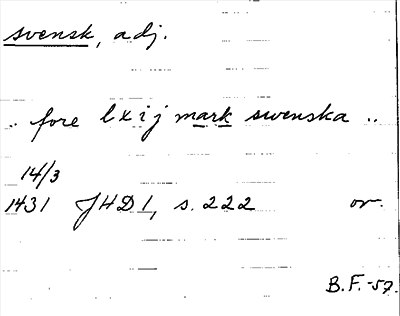 svensk, adj.
.. fore lxij mark swenska ..
14/3
1431 JHD 1, s. 222 or.
B.F.-57.